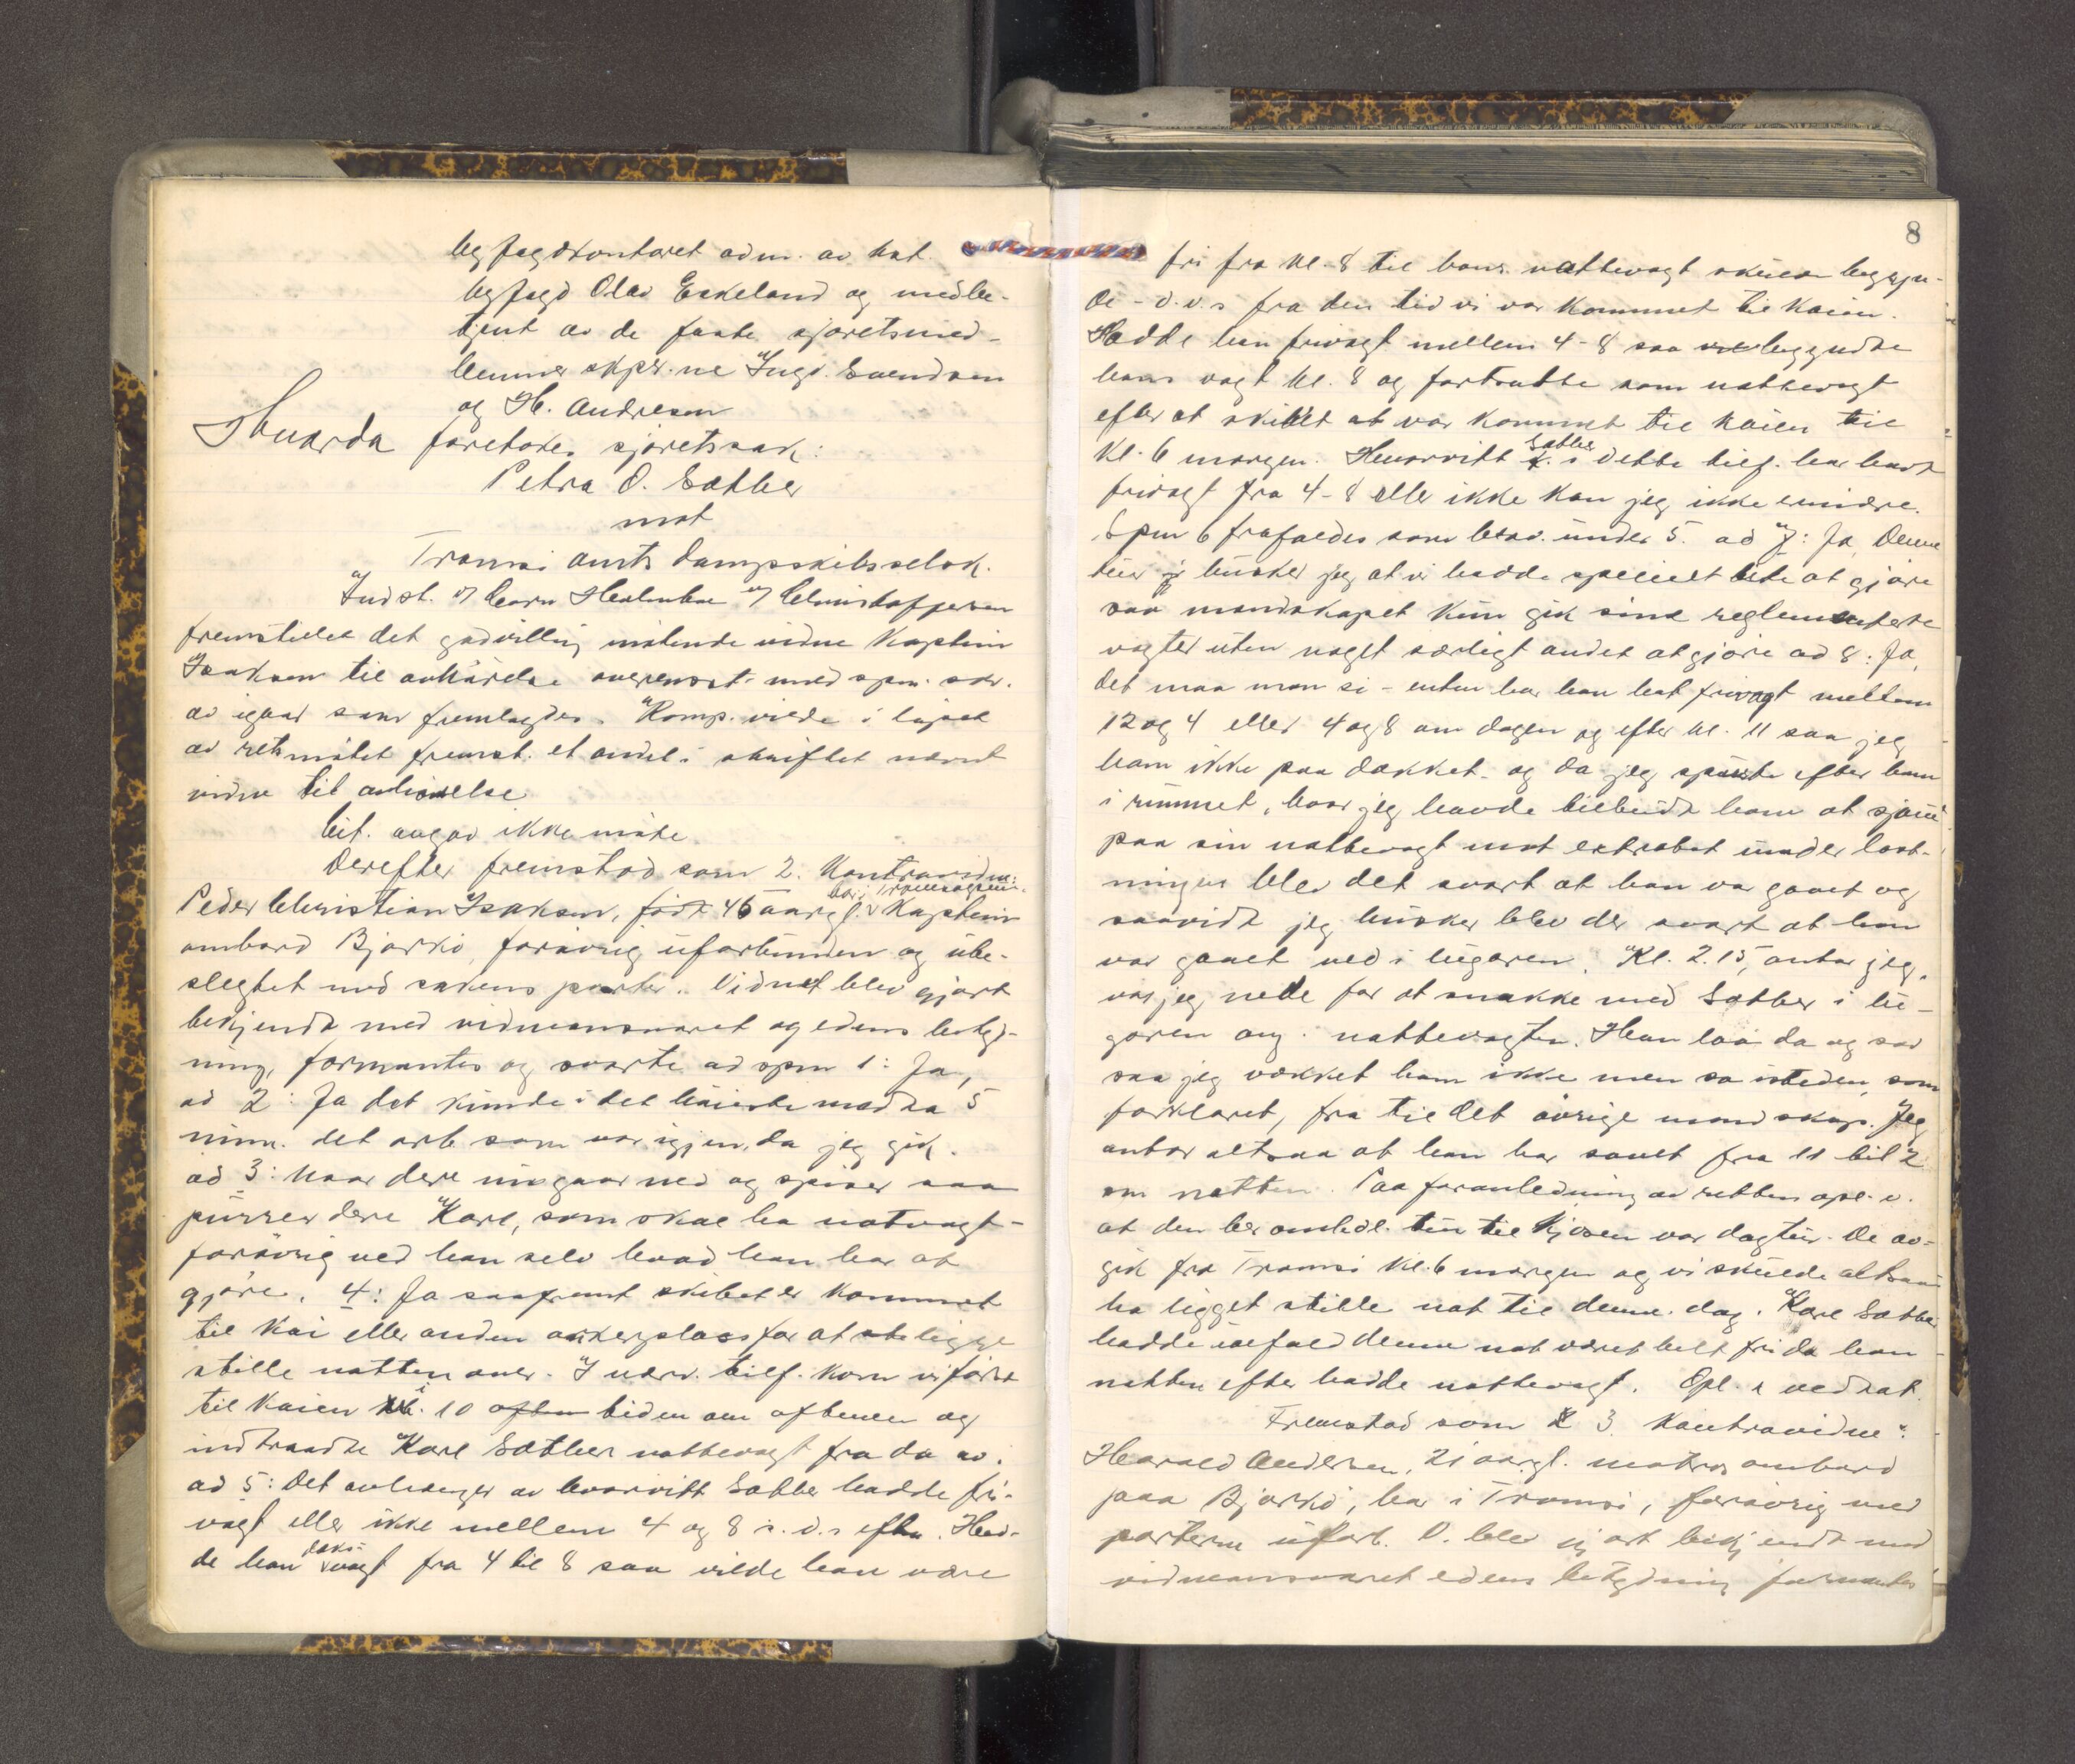 byfogdkontoret adm. av kst.
byfogd Olav Eskeland og medbe-
tjent av de faste sjøretsmed-
lemmer skpr.ne Ingv. Svendsen
og H. Andresen
Hvorda foretokes sjøretssak:
Petra O. Sæther
mot
Tromsø amts dampskibsselsk.
Indst. v/ Hermstafjersen
fremstillet det godvillig møtende vidne kaptein
Isaksen til avhørelse overensst. med spm. skr.
av igaar som fremlagdes. Komp. vilde i løpet
av retsmøtet fremst. et andet i skriftet nævnt
vidne til avhørelse
Cit. avgav ikke møte
Derefter fremstod som 2. Kontravidne:
Peder Christian Isaksen, født 46 aar gl. bor i Tromsøysun. Kaptein
ombord Bjarkø, forøvrig uforbunden og ube-
slegtet med sakens parter. Vidnet blev gjort
bekjendt med vidneansvaret og edens betyd-
ning, formantes og svarte ad spm 1: Ja,
ad 2: Ja det kunde i det høieste medta 5
min. det arb. som var igjen, da jeg gik.
ad 3: Naar dere nu gaar ned og spiser saa
purrer dere Kare, som skal ha natvagt -
forøvrig ved han selv hvad han har at
gjøre. 4: Ja saafremt skibet er kommet
til kai eller anden ankerplass for at ligge
stille natten over. I nærv. tilf. kom vi først
til kaien i 10 aften tiden om aftenen og
indtraadte Kare Sæthers nattevagt fra da av.
ad 5: Det avhænger av hvorvitt Sæther hadde fri-
vagt eller ikke mellem 4 og 8 s. d.s eftm. Had-
de han daks-vagt fra 4 til 8 saa vilde han være
8
fri fra kl. 8 til hans nattevagt skulde begyn-
de - d.v.s fra den tid vi var kommet til kaien.
Hadde han frivagt mellem 4-8 saa begyndte
hans vagt kl. 8 og fortsatte som nattevagt
efter at skibet var kommet til kaien til
kl. 6 morgen. Hvorvitt Sæther i dette tilf. har havt
frivagt fra 4-8 eller ikke kan jeg ikke erindre.
Spm 6 frafaldes som besv. under 5. ad 7: Ja, denne
tur husker jeg at vi hadde specielt lite at gjøre
saa mandskapet kun gik sine reglementerte
vagter uten noget særligt andet at gjøre ad 8: Ja,
det maa man si - enten har han hat frivagt mellem
12 og 4 eller 4 og 8 om dagen og efter kl. 11 saa jeg
ham ikke paa dækket og da jeg spurte efter ham
i rummet, hvor jeg havde tilbudt ham at sjaue
paa sin nattevagt mot extrabet under last-
ningen blev det svart at han var gaaet og
saavidt jeg husker blev der svart at han
var gaaet ned i lugaren. Kl. 2.15, antar jeg,
var jeg nede for at snakke med Sæther i lu-
garen ang. nattevagten. Han laa da og sov
saa jeg vækket ham ikke men sa isteden, som
forklaret, fra til det øvrige mandskap. Jeg
antar altsaa at han har sovet fra 11 til 2
om natten. Paa foranledning av retten opl. v.
at den her omhdl. tur til var dagtur. De av-
gik fra Tromsø kl. 6 morgen og vi skulde altsaa
ha ligget stille nat til denne dag. Kare Sæther
hadde ialfald denne nat været helt fri da han
natten efter hadde nattevagt. Opl. s vedtat.
Fremstod som 3. Kontravidne:
Harald Andersen, 21 aar gl. matros ombord
paa Bjarkø, bor i Tromsø, forøvrig med
parterne uforb. V. blev gjort bekjendt med
vidneansvaret edens betydning formantes